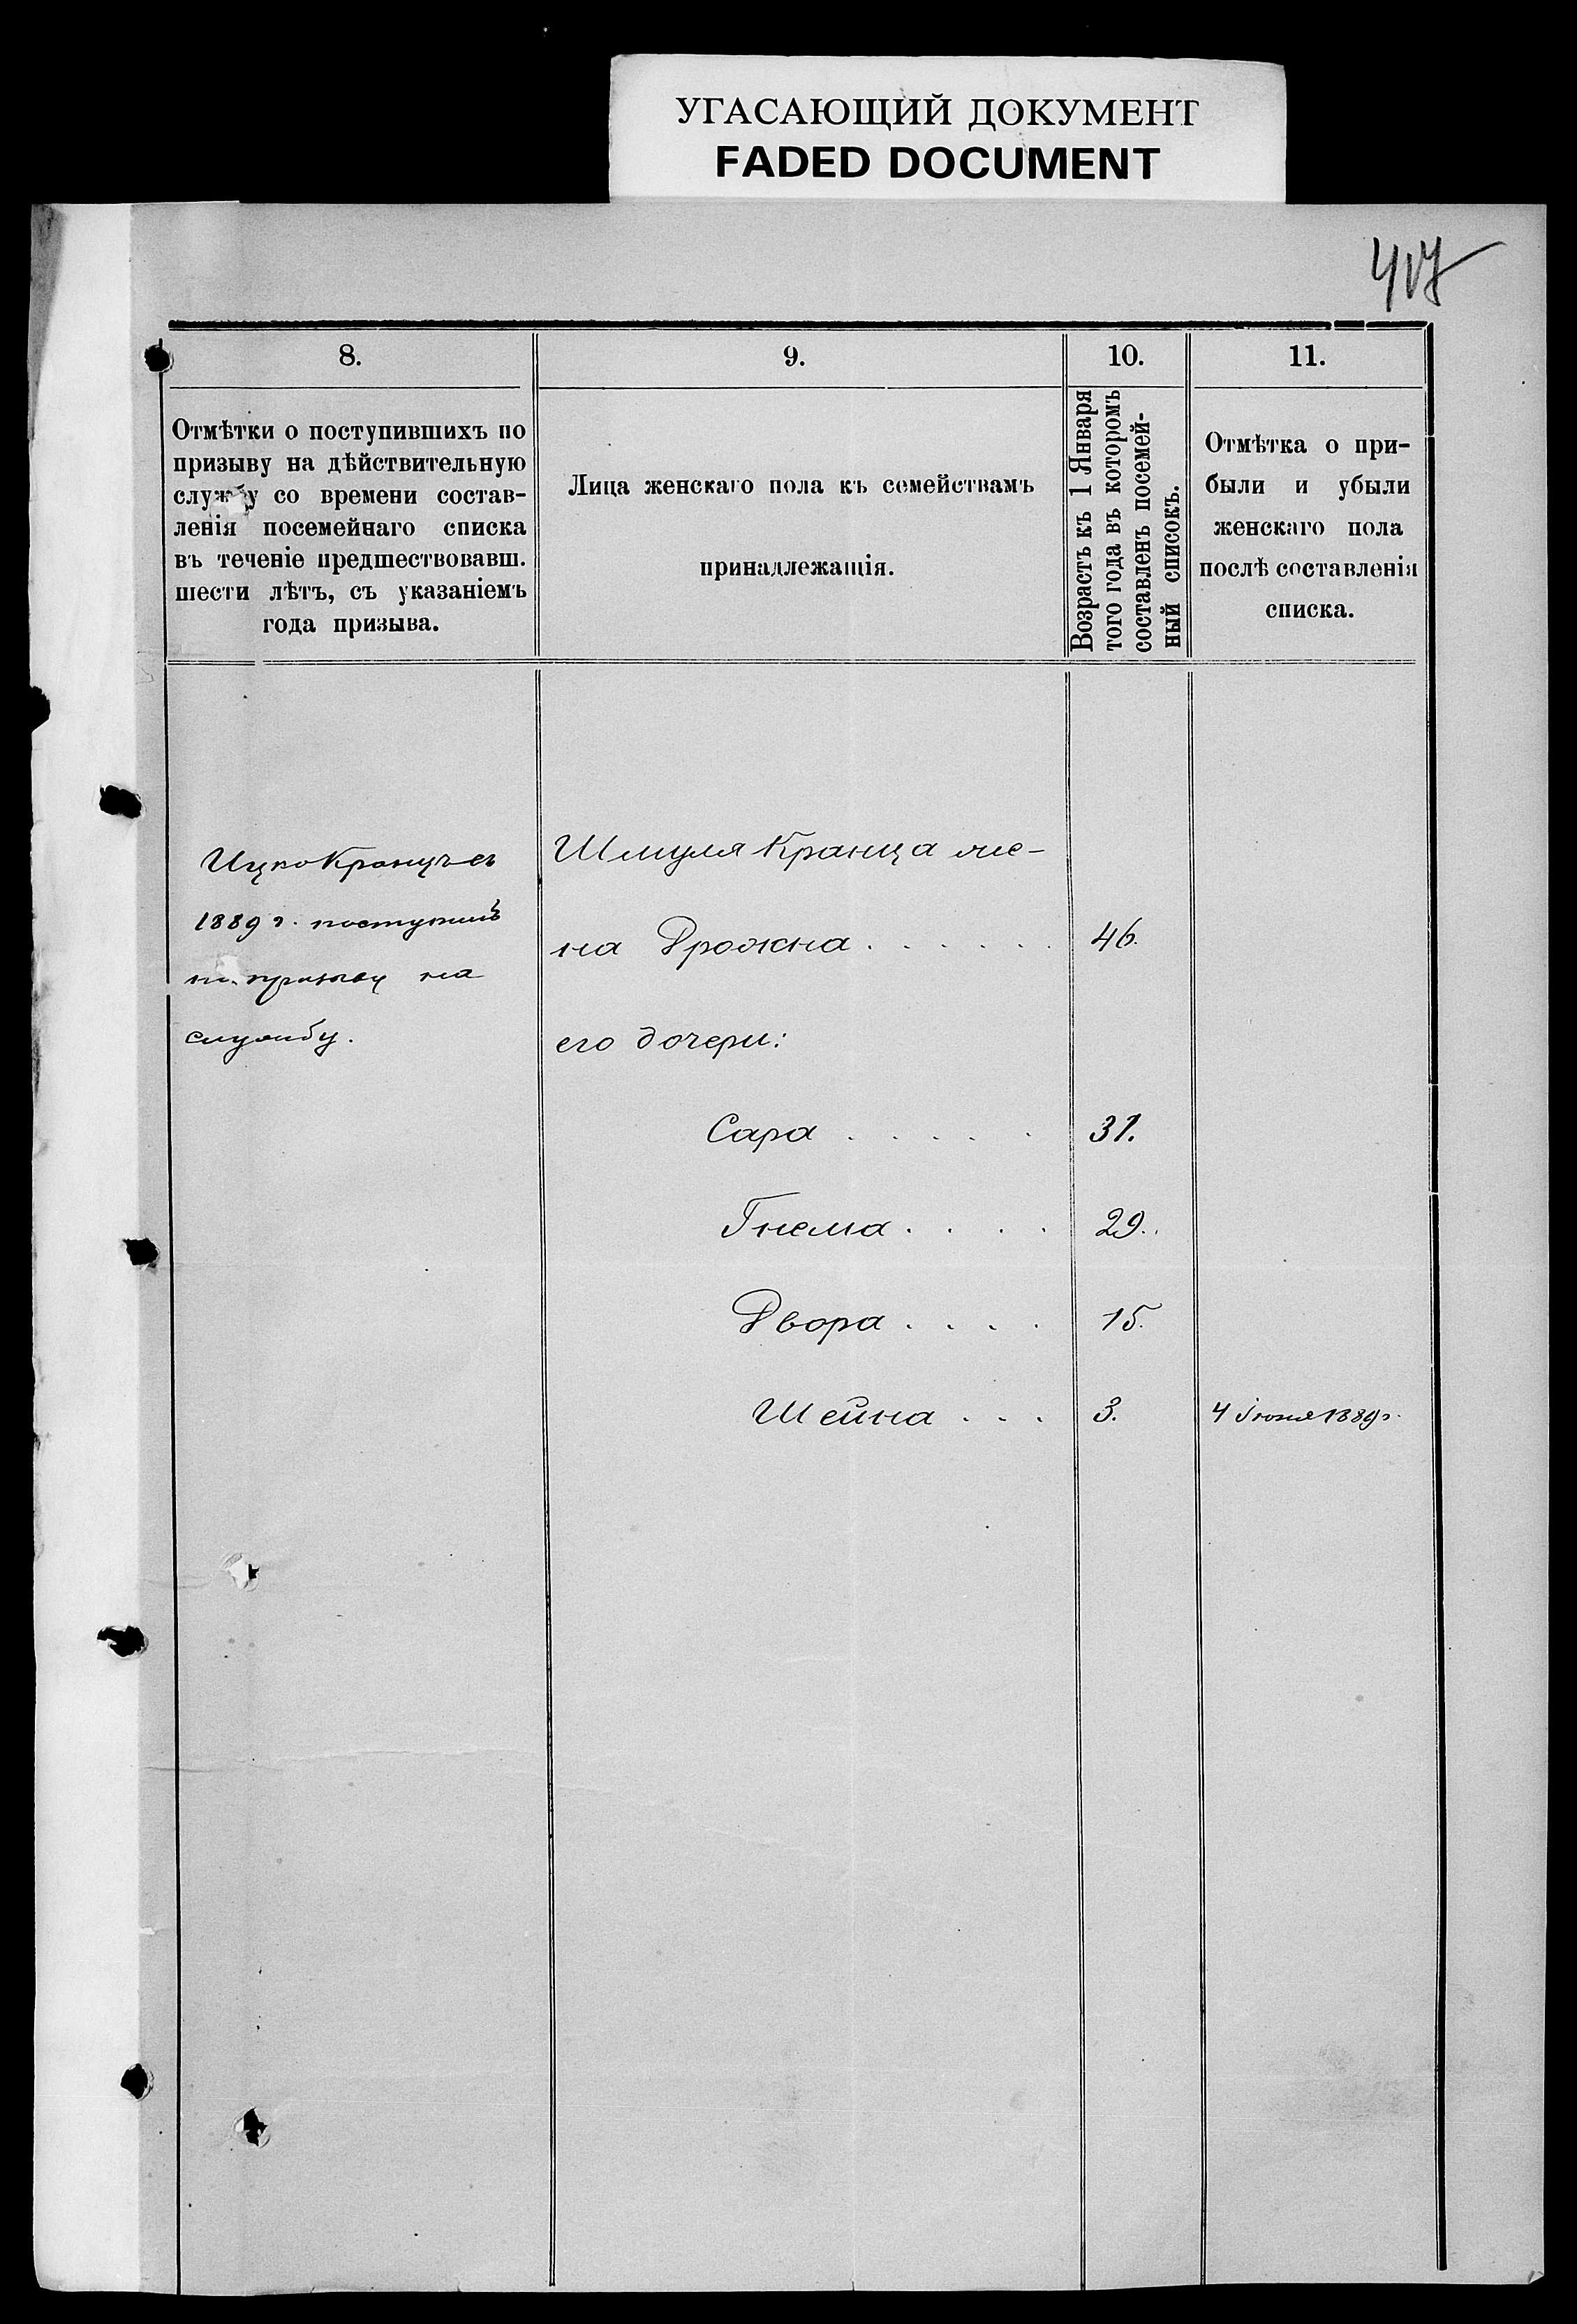 УГАСАЮЩИЙ ДОКУМЕНТ
FADED DOCUMENT
417
8.
Отмѣтки о поступившихъ по
призыву на дѣйствительную
службу со времени состав-
ленія посемейнаго списка
въ теченіе предшествовавш.
шести лѣтъ, съ указаніемъ
года призыва.
9.
Лица женскаго пола къ семействамъ
принадлежащія.
10.
Возрастъ къ 1 Января
того года въ которомъ
составленъ посемей-
ный списокъ.
11.
Отмѣтка о при-
были и убыли
женскаго пола
послѣ составленія
списка.
Ицко Кранцъ въ
1889 г. поступилъ
по призыву на
службу.
Шмуля Кранца же-
на Дрожна . . . . . . 46.
его дочери:
Сара . . . . . 31.
Гнема . . . . 29.
Двора . . . . 15.
Шейна . . . 3. 4 Іюня 1889 г.